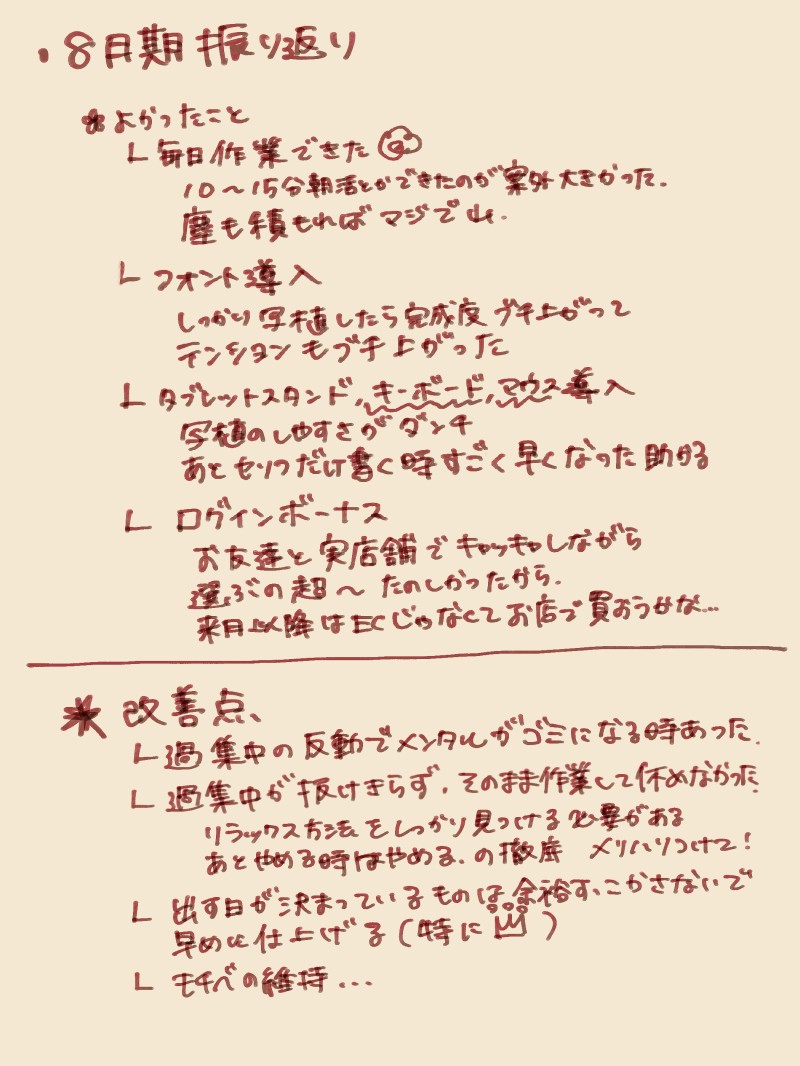 ・8月期振り返り
＊よかったこと
└ 毎日作業できた
10〜15分朝活とかできたのが案外大きかった.
塵も積もればマジで山.
└ フォント導入
しっかり写植したら完成度ブチ上がって
テンションもブチ上がった
└ タブレットスタンド,キーボード,マウス導入
写植のしやすさがダンチ
あとセリフだけ書く時すごく早くなった助かる
└ ログインボーナス
お友達と実店舗でキャッキャしながら
選ぶの超〜たのしかったから.
来月以降はECじゃなくてお店で買おうかな...
＊改善点、
└過集中の反動でメンタルがゴミになる時あった.
└過集中が抜けきらず,そのまま作業して休めなかった.
リラックス方法をしっかり見つける必要がある
あとやめる時はやめる.の徹底 メリハリつけて!
└ 出す日が決まっているものは余裕すっこかさないで
早めに仕上げる(特に )
└ モチベの維持...